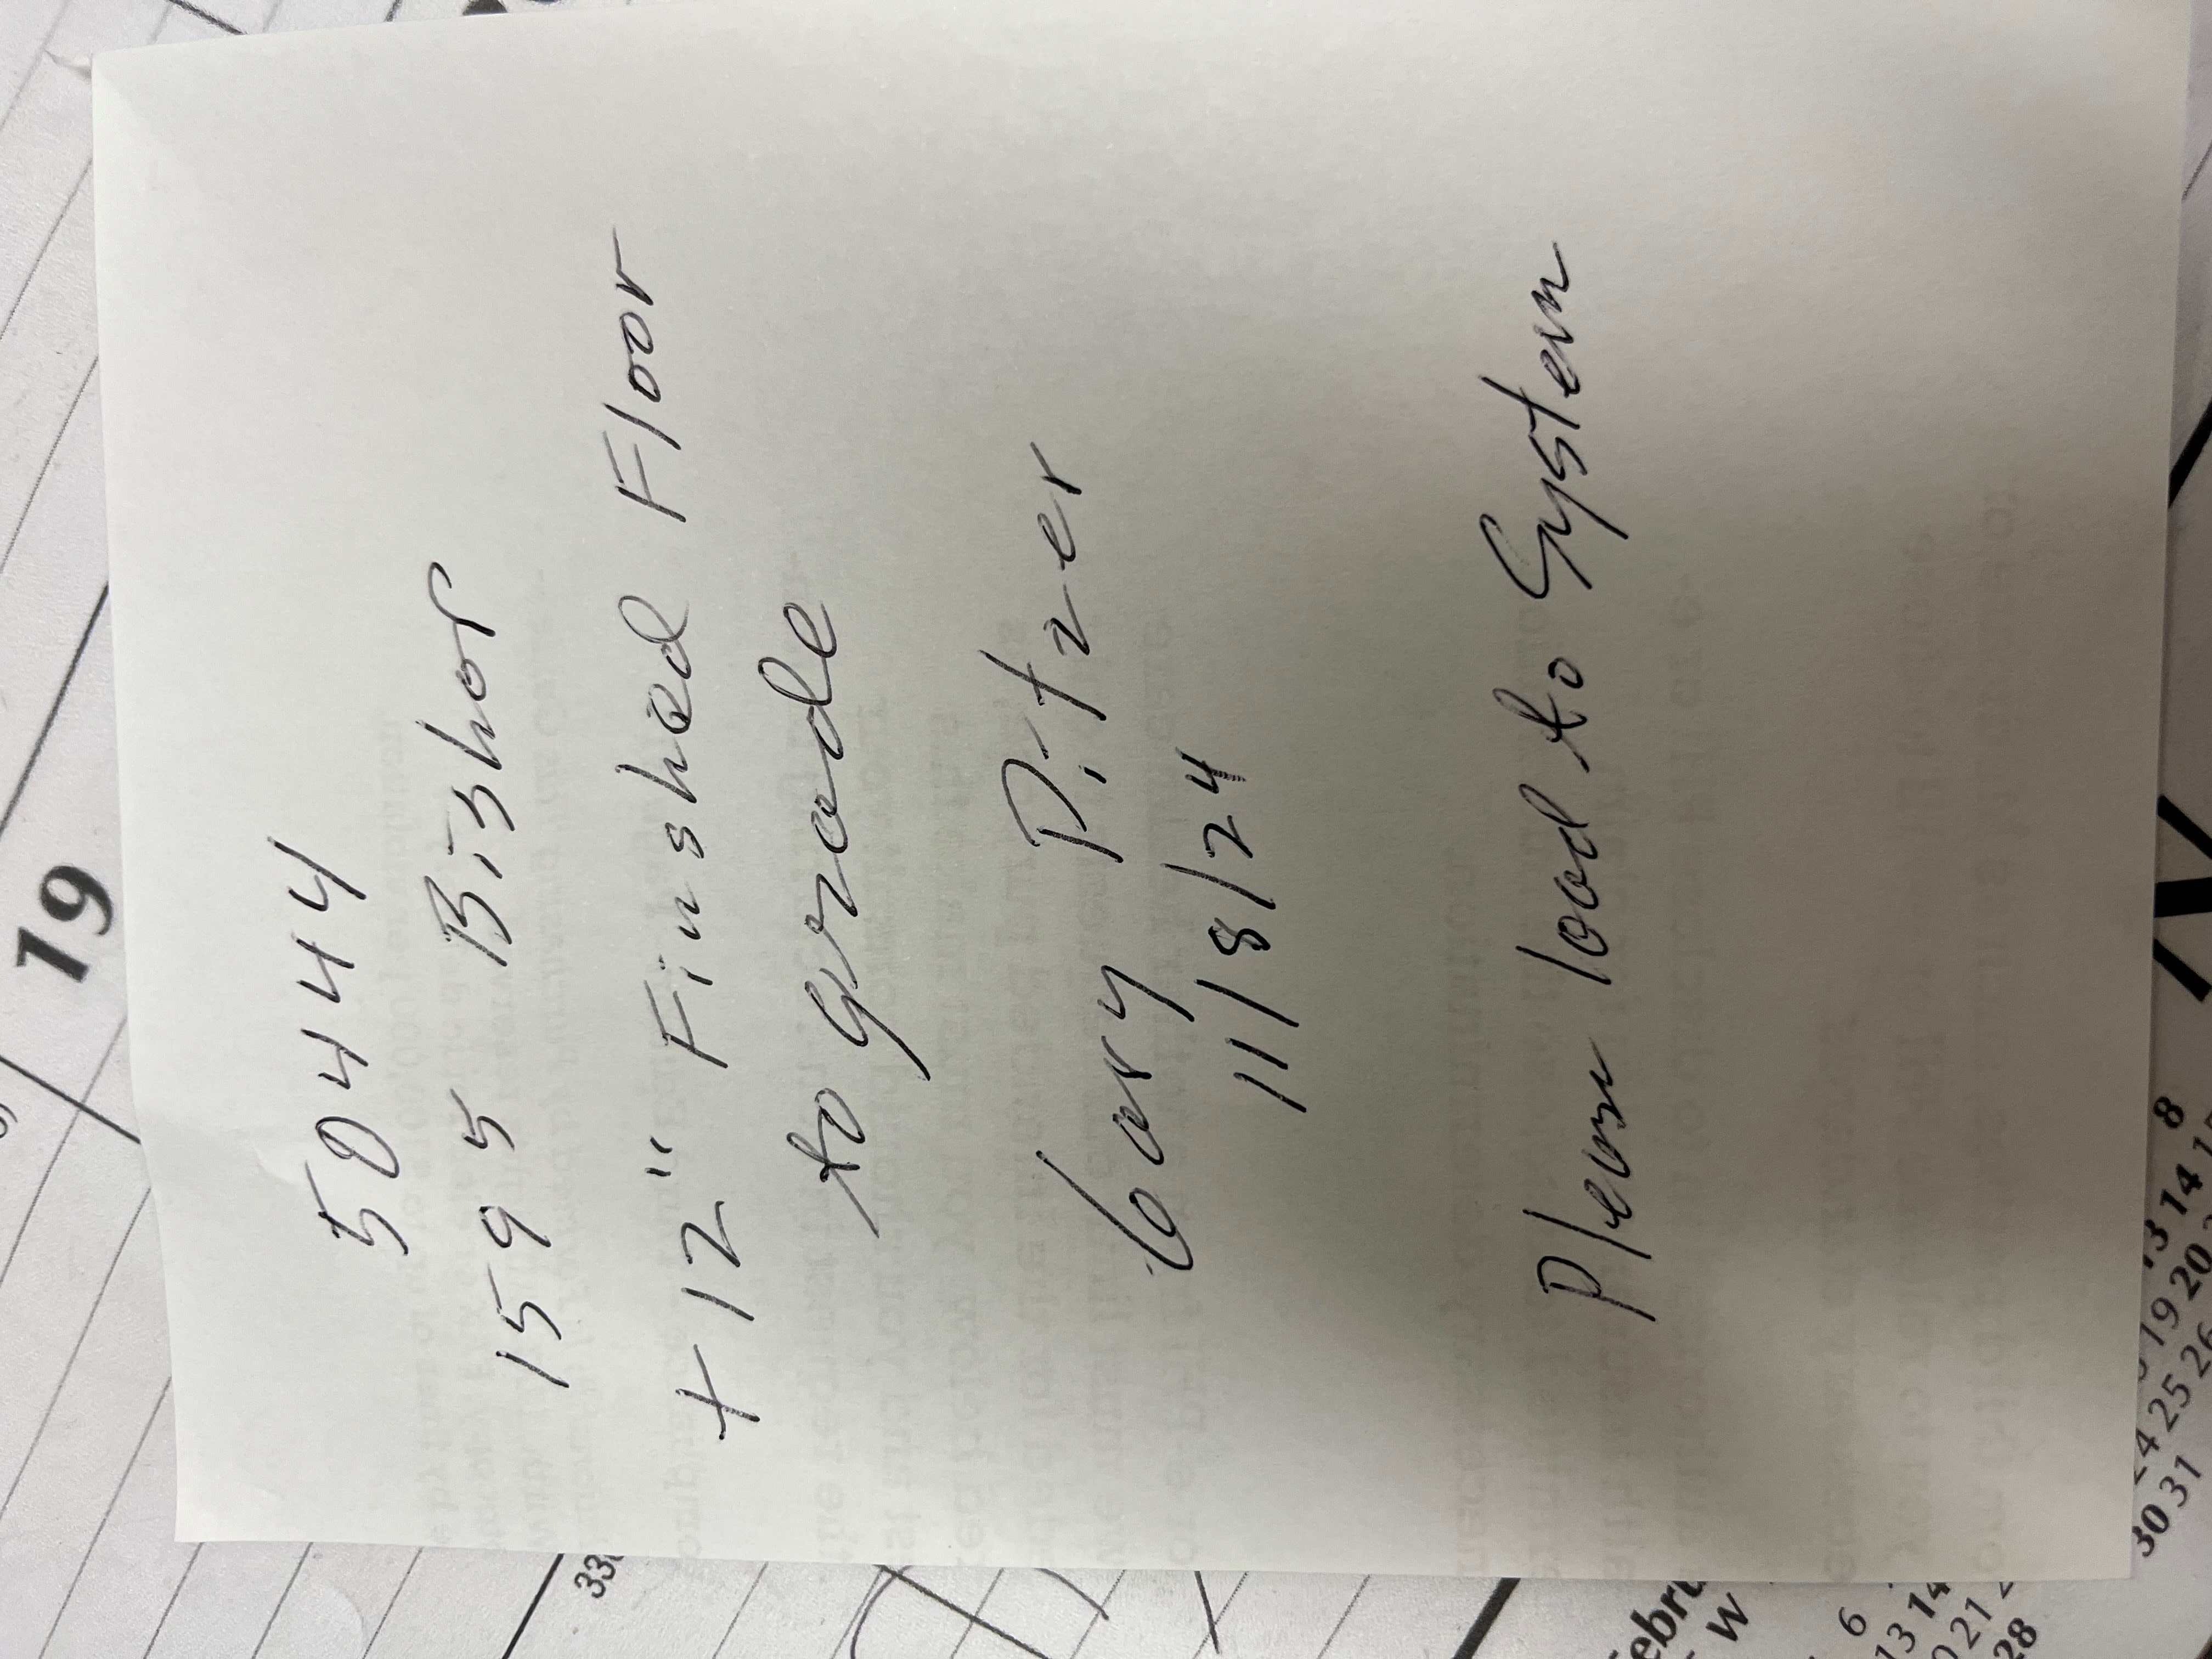 50444
1595 Bishop
+12" Finished Floor
to grade
Gary Pitzer
11/8/24
Please load to System
19
33
Febru
W
6 8
13 14
19 20
24 25 26
30 31
13 14
20 21
28